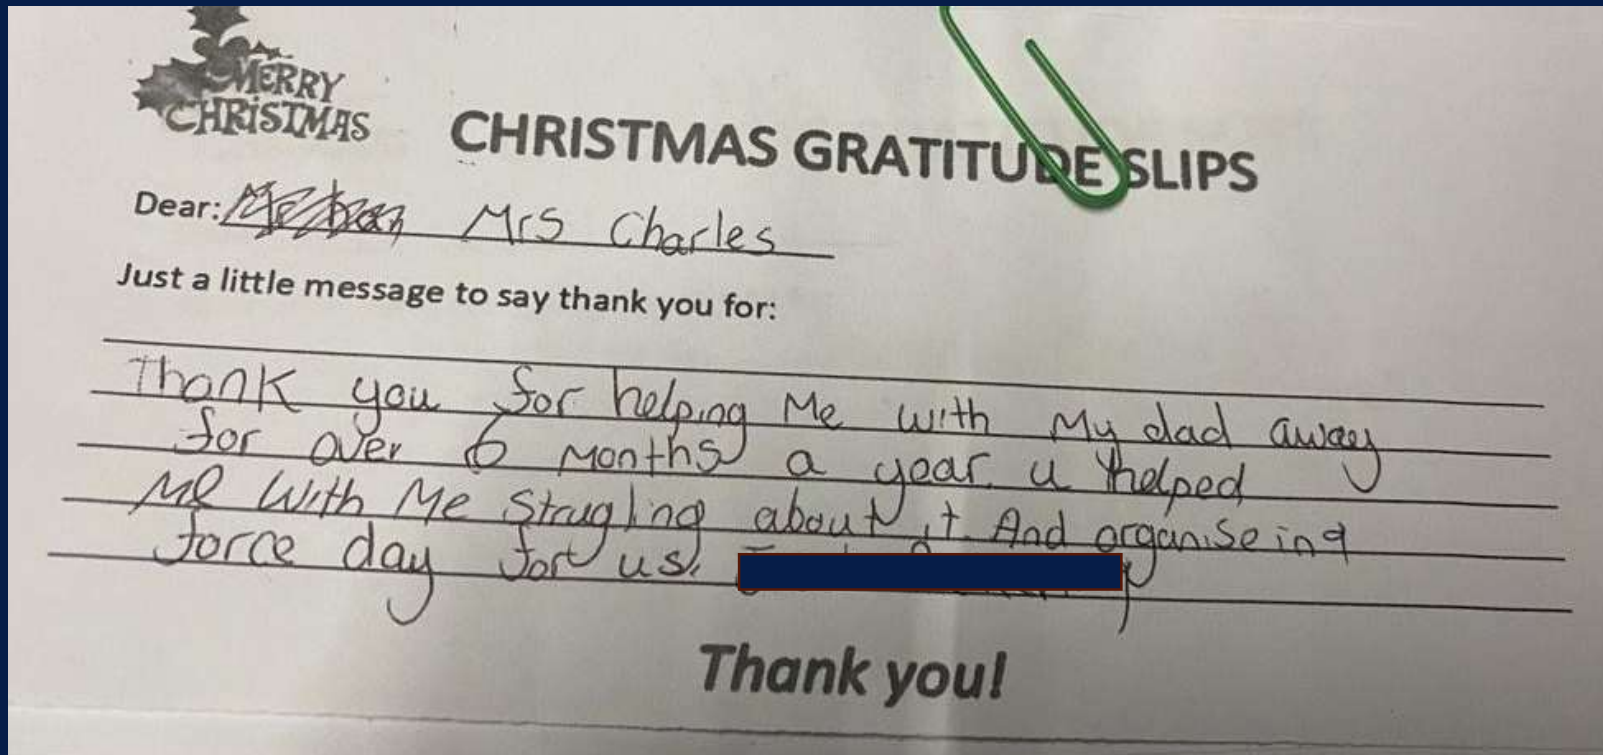 MERRY
CHRISTMAS
CHRISTMAS GRATITUDE SLIPS
Dear: Mrs Charles
Just a little message to say thank you for:
Thank you for helping Me with My dad away
for over 6 Months a year. u helped
Me With Me Strugling about it. And organiseing
force day for us.
Thank you!